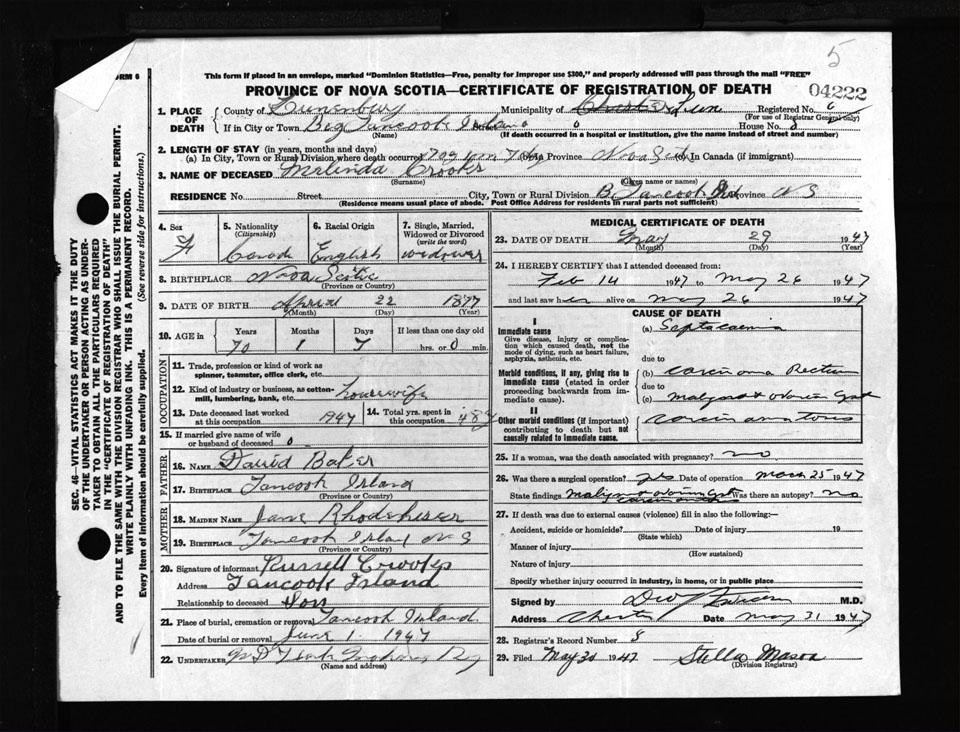 5
ORM 6
This form if placed in an envelope, marked "Dominion Statistics—Free, penalty for improper use $300," and properly addressed will pass through the mail "FREE"
PROVINCE OF NOVA SCOTIA—CERTIFICATE OF REGISTRATION OF DEATH
04222
1. PLACE OF DEATH
County of Lunenburg Municipality of Chester Lune Registered No. 6
(For use of Registrar General only)
If in City or Town Big Tancook Island 0 House No. 0
(Name) (If death occurred in a hospital or institution, give the name instead of street and number)
2. LENGTH OF STAY (in years, months and days)
(a) In City, Town or Rural Division where death occurred 70 y 1 m 7 dy (b) In Province Nova Scotia (c) In Canada (if immigrant)
3. NAME OF DECEASED Melinda Crooks
(Surname) (Given name or names)
RESIDENCE No. Street City, Town or Rural Division B. Tancook Isd Province N S
(Residence means usual place of abode. Post Office Address for residents in rural parts not sufficient)
4. Sex F
5. Nationality (Citizenship) Canada
6. Racial Origin English
7. Single, Married, Widowed or Divorced (write the word) widower
8. BIRTHPLACE Nova Scotia
(Province or Country)
9. DATE OF BIRTH April 22 1877
(Month) (Day) (Year)
10. AGE in Years Months Days If less than one day old
70 1 7 hrs. or 0 min.
OCCUPATION
11. Trade, profession or kind of work as spinner, teamster, office clerk, etc.
12. Kind of industry or business, as cotton-mill, lumbering, bank, etc. housewife
13. Date deceased last worked at this occupation 1947 14. Total yrs. spent in this occupation 48 y
15. If married give name of wife or husband of deceased 0
FATHER
16. NAME David Baker
17. BIRTHPLACE Tancook Island
(Province or Country)
MOTHER
18. MAIDEN NAME Jane Rhodeniser
19. BIRTHPLACE Tancook Island N S
(Province or Country)
20. Signature of informant Russell Crooks
Address Tancook Island
Relationship to deceased Son
21. Place of burial, cremation or removal Tancook Island
Date of burial or removal June 1 1947
22. UNDERTAKER
(Name and address)
MEDICAL CERTIFICATE OF DEATH
23. DATE OF DEATH May 29 1947
(Month) (Day) (Year)
24. I HEREBY CERTIFY that I attended deceased from:
Feb 14 1947 to May 26 1947
and last saw her alive on May 26 1947
CAUSE OF DEATH
I
Immediate cause
Give disease, injury or complication which caused death, not the mode of dying, such as heart failure, asphyxia, asthenia, etc.
(a) Septacaemia
due to
Morbid conditions, if any, giving rise to immediate cause (stated in order proceeding backwards from immediate cause).
(b) carcinoma Rectum
due to
(c) malignant ovarian cyst
II
Other morbid conditions (if important) contributing to death but not causally related to immediate cause.
carcinomatosis
25. If a woman, was the death associated with pregnancy? no
26. Was there a surgical operation? yes Date of operation March 25 1947
State findings malignant ovarian cyst Was there an autopsy? no
27. If death was due to external causes (violence) fill in also the following:—
Accident, suicide or homicide? Date of injury 19
(State which)
Manner of injury
(How sustained)
Nature of injury
Specify whether injury occurred in industry, in home, or in public place
Signed by M.D.
Address Chester Date May 31 1947
28. Registrar's Record Number 8
29. Filed May 30 1947 Stella Mason
(Division Registrar)
SEC. 46—VITAL STATISTICS ACT MAKES IT THE DUTY
OF THE UNDERTAKER OR PERSON ACTING AS UNDER-
TAKER TO OBTAIN ALL THE PARTICULARS REQUIRED
IN THE "CERTIFICATE OF REGISTRATION OF DEATH"
AND TO FILE THE SAME WITH THE DIVISION REGISTRAR WHO SHALL ISSUE THE BURIAL PERMIT.
WRITE PLAINLY WITH UNFADING INK. THIS IS A PERMANENT RECORD.
Every item of information should be carefully supplied. (See reverse side for instructions.)